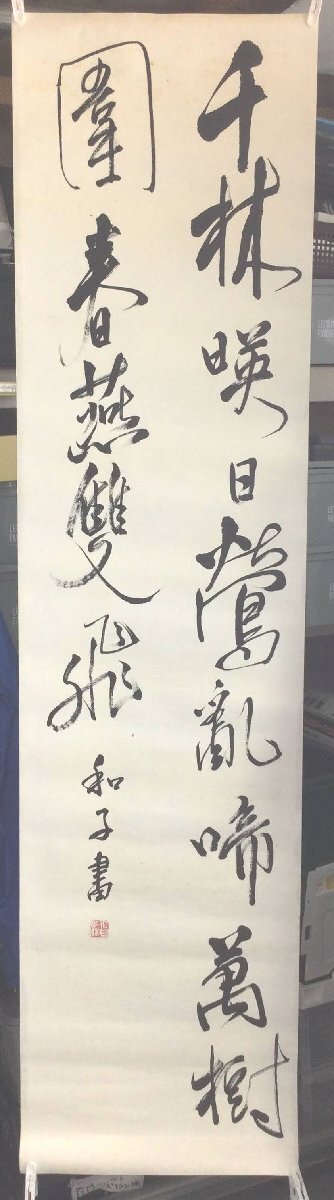 千林暎日鶯亂啼萬樹
圍春燕雙飛
和子書